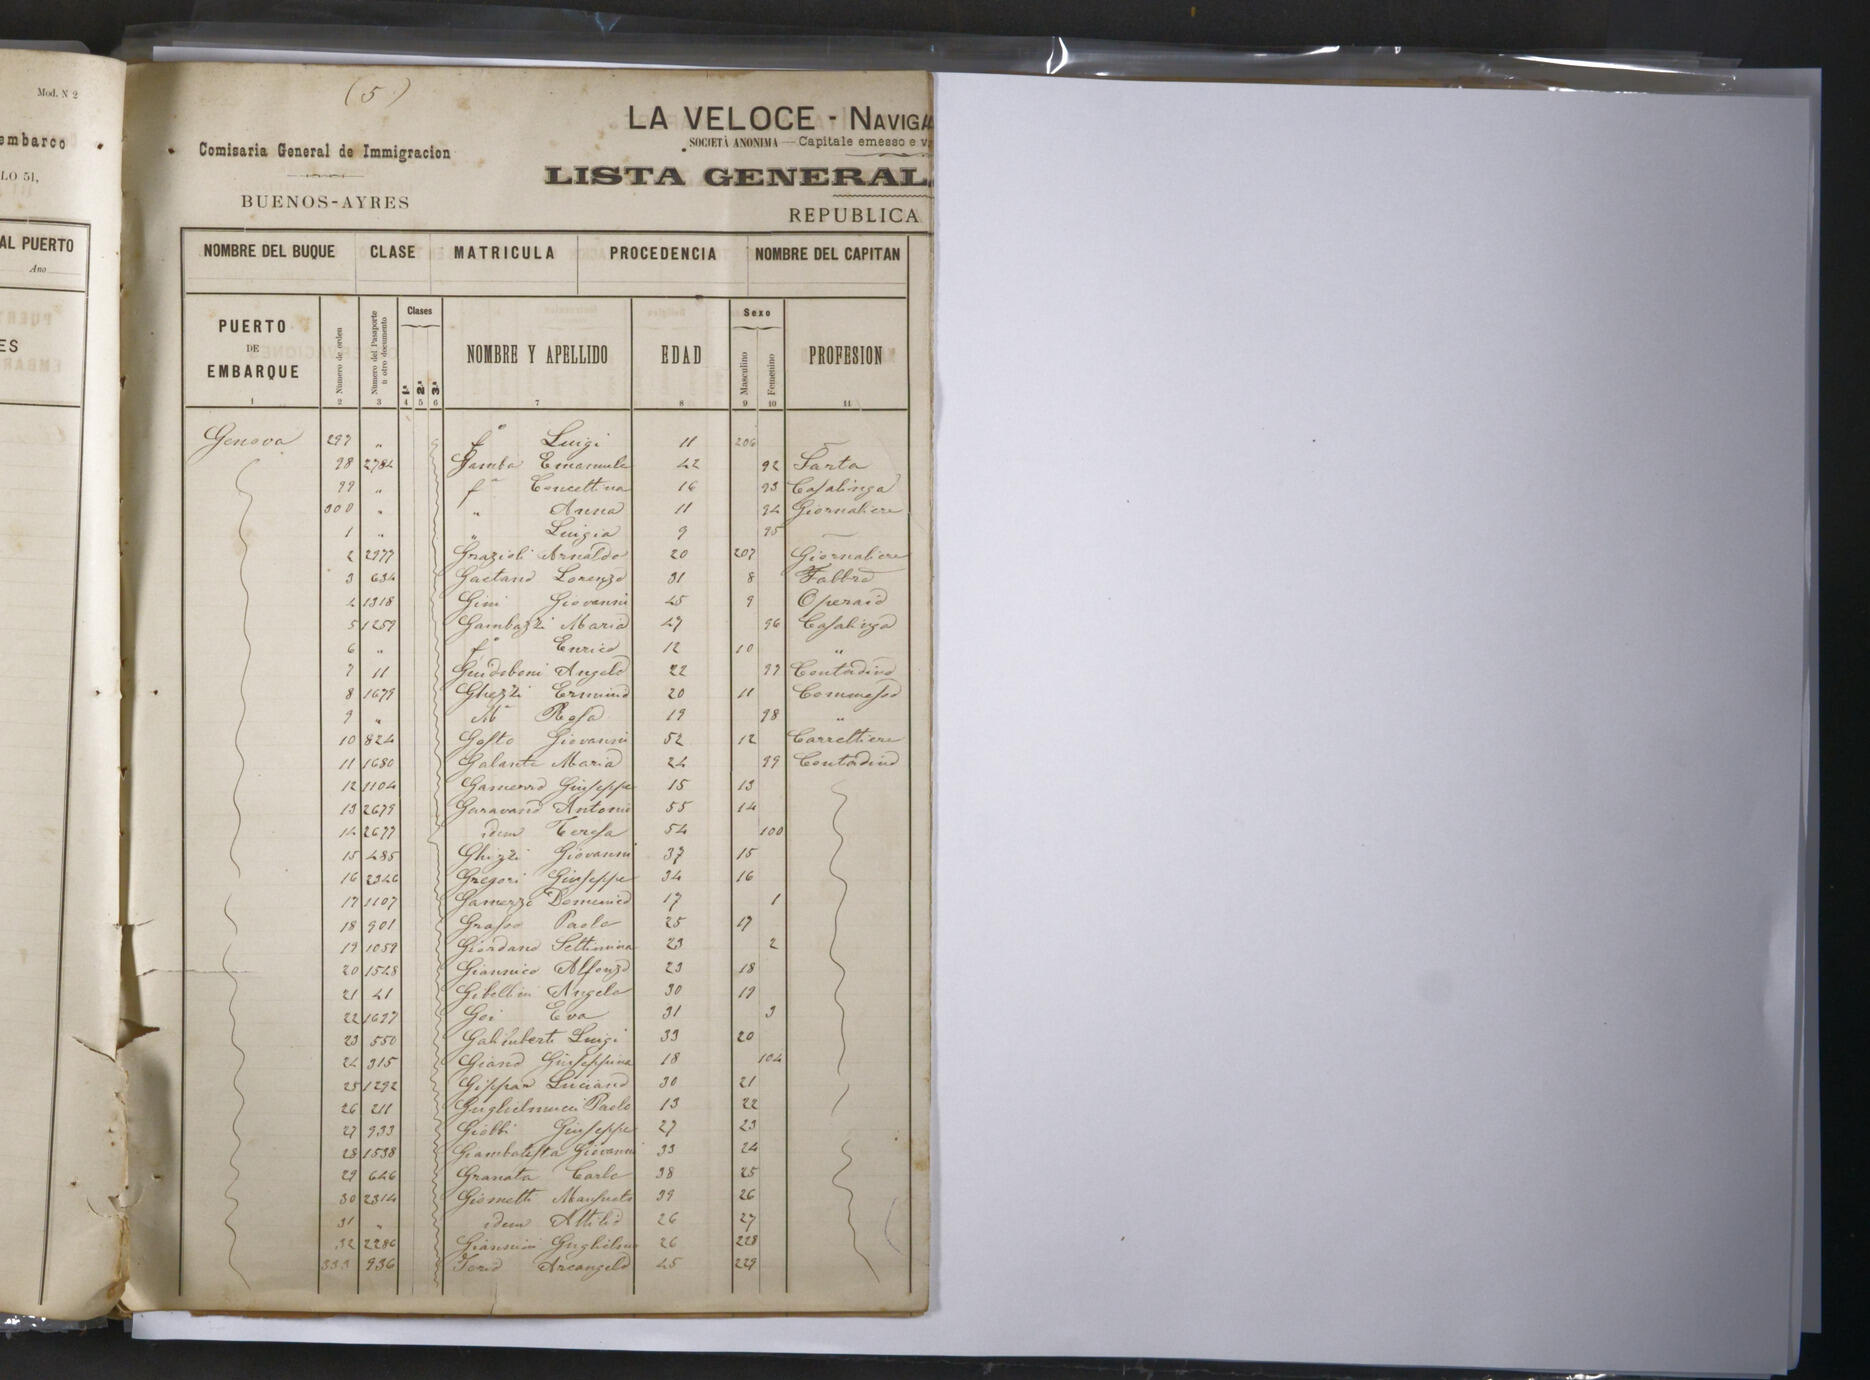 Mod. N 2
embarco
LO 51,
AL PUERTO
Ano
ES
(5)
LA VELOCE - NAVIGA
SOCIETÀ ANONIMA — Capitale emesso e v
Comisaria General de Immigracion
LISTA GENERAL
BUENOS-AYRES
REPUBLICA
NOMBRE DEL BUQUE CLASE MATRICULA PROCEDENCIA NOMBRE DEL CAPITAN
PUERTO DE EMBARQUE Número de orden Número del Pasaporte ú otro documento Clases 1ª 2ª 3ª NOMBRE Y APELLIDO EDAD Sexo Masculino Femenino PROFESION
1 2 3 4 5 6 7 8 9 10 11
Genova 297 " fº Luigi 11 206 —
98 2784 Gamba Emanuela 42 92 Sarta
99 " fª Concettina 16 93 Casalinga
300 " " Anna 11 94 Giornaliera
1 " " Luigia 9 95 —
2 2977 Grazioli Arnaldo 20 207 Giornaliere
3 634 Gaetano Lorenzo 31 8 Fabbro
4 1318 Gini Giovanni 45 9 Operaio
5 1259 Gambazzi Maria 47 96 Casalinga
6 " fº Enrico 12 10 "
7 11 Guidoboni Angelo 22 97 Contadino
8 1679 Ghezzi Erminio 20 11 Commesso
9 " Mª Rosa 19 98 "
10 824 Gosto Giovanni 52 12 Carrettiere
11 1680 Galante Maria 24 99 Contadino
12 1104 Gamerro Giuseppe 15 13
13 2679 Garavano Antonio 55 14
14 2677 idem Teresa 54 100
15 485 Ghizzi Giovanni 37 15
16 2346 Gregori Giuseppe 34 16
17 1107 Domenico 17 1
18 901 Grasso Paolo 25 17
19 1059 Giordano Settimina 23 2
20 1548 Giannico Alfonzo 23 18
21 41 Gibellini Angelo 30 19
22 1697 Goi Eva 31 3
23 550 Galimberti Luigi 33 20
24 315 Giano Giuseppina 18 104
25 1292 Luciano 30 21
26 211 Guglielmucci Paolo 13 22
27 933 Giobbi Giuseppe 27 23
28 1538 Giambatista Giovanni 33 24
29 646 Granata Carlo 38 25
30 2314 Giometti Mansueto 39 26
31 " idem Attilio 26 27
32 2286 Giannini Guglielmo 26 228
333 936 Arcangelo 45 229